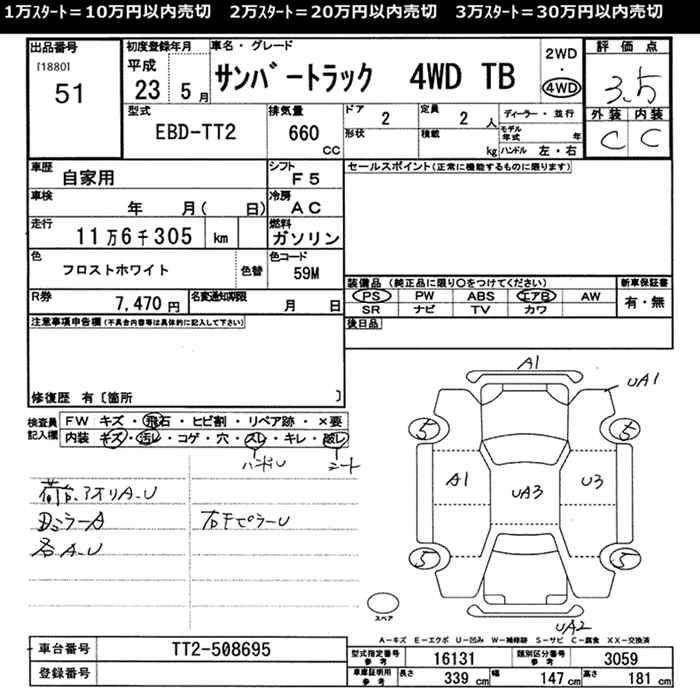 1万ｽﾀｰﾄ＝10万円以内売切　2万ｽﾀｰﾄ＝20万円以内売切　3万ｽﾀｰﾄ＝30万円以内売切
出品番号 初度登録年月 車名・グレード 2WD 評価点
[1880] 平成 サンバートラック 4WD TB ・ 3.5
51 23 5月 4WD 外装 内装
型式 排気量 ドア 2 定員 2人 ディーラー・並行 C C
EBD-TT2 660 cc 形状 積載 kg モデル年式 年
ハンドル 左・右
車歴 自家用 シフト F5 セールスポイント(正常に機能するものに限ります)
車検 年 月( 日) 冷房 AC
走行 11万6千305 km 燃料 ガソリン
色 フロストホワイト 色替 色コード 59M
装備品 (純正品に限り○をつけてください) 新車保証書
R券 7,470円 名変通知期限 月 日 PS PW ABS エアB AW 有・無
SR ナビ TV カワ
注意事項申告欄(不具合内容等は具体的に記入して下さい) 後日品
修復歴 有〔箇所 〕
検査員記入欄 FW キズ・飛石・ヒビ割・リペア跡・×要
内装 キズ・汚レ・コゲ・穴・スレ・キレ・破レ
ハンドル シート
荷台、アオリA-U
Dミラ-A 右干ピラ-U
各A-U
A1
UA1
5 5
A1 UA3 U3
5 5
スペア
UA2
A－キズ E－エクボ U－凹み W－補修跡 S－サビ C－腐食 XX－交換済
車台番号 TT2-508695 型式指定番号 参考 16131 類別区分番号 参考 3059
登録番号 車庫証明用 参考 長さ 339cm 幅 147cm 高さ 181cm